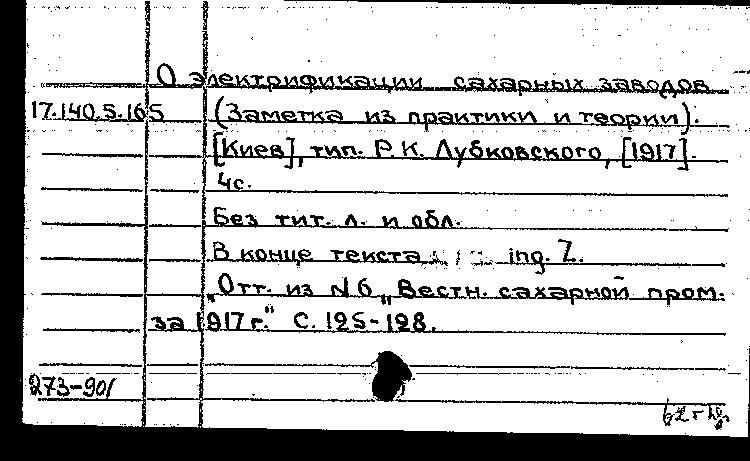 О электрификации сахарных заводов
17.140.5.165 (Заметка из практики и теории).
[Киев], тип. Р.К. Лубковского, [1917].
4с.
Без тит. л. и обл.
В конце текста ing. Z.
„Отт. из №6 „Вестн. сахарной пром.
за 1917 г." С. 125-128.
273-901